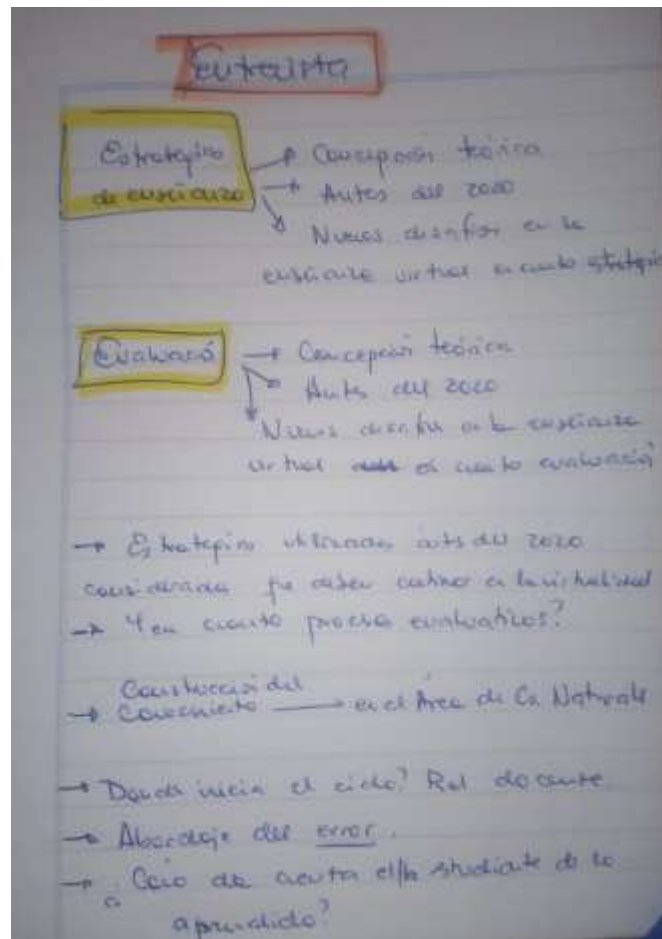 Entrevista
Estrategias → Concepción teórica
de enseñanza → Antes del 2020
→ Nuevos desafíos en la
enseñanza virtual en cuanto
Evaluació → Concepción teórica
→ Antes del 2020
Nuevos desafíos en la enseñanza
virtual en cuanto evaluación
→ Estrategias utilizadas antes del 2020
en la virtualidad
→ Y en cuanto procesos evaluativos?
Construcción del
→ Conocimiento → en el Área de Cs. Naturale
→ Donde inicia el ciclo? Rol docente
→ Abordaje del error.
→ da cuenta el/la studiante de lo
aprendido?